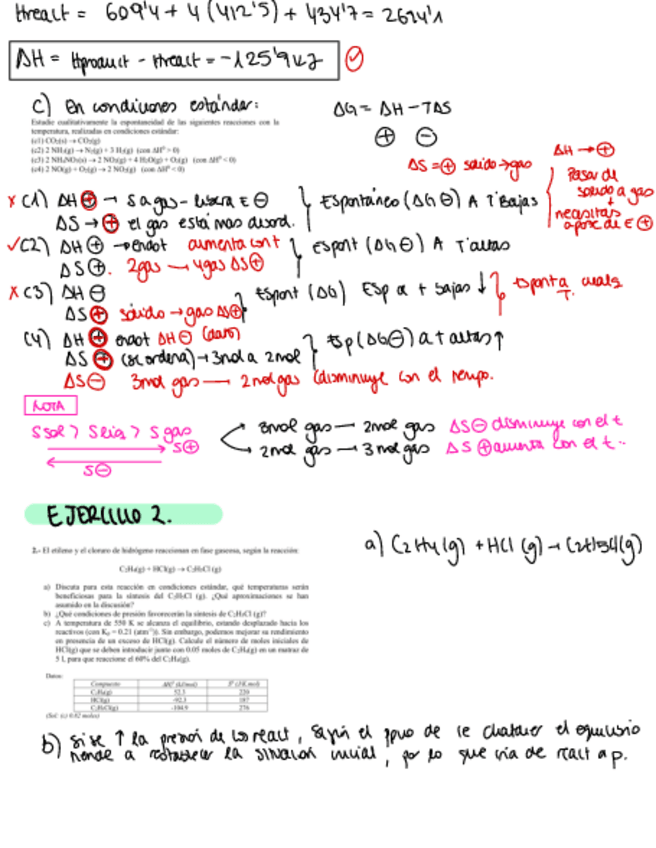 Hreact = 609'4 + 4 (412'5) + 434'7 = 2694'1
ΔH = Hproduct - Hreact = -125'9 kJ
c) En condiciones estándar:
ΔG = ΔH - TΔS
⊕ ⊖
Estudie cualitativamente la espontaneidad de las siguientes reacciones con la
temperatura, realizadas en condiciones estándar:
(c1) CO₂(s) → CO₂(g)
(c2) 2 NH₃(g) → N₂(g) + 3 H₂(g) (con ΔHº > 0)
(c3) 2 NH₄NO₃(s) → 2 N₂(g) + 4 H₂O(g) + O₂(g) (con ΔHº < 0)
(c4) 2 NO(g) + O₂(g) → 2 NO₂(g) (con ΔHº < 0)
ΔS = ⊕ solido → gas
ΔH → ⊕
Pasar de
solido a gas
necesitas
aporte de E ⊕
x C1) ΔH ⊕ → s a gas - libera E ⊖
ΔS → ⊕ el gas está mas desord.
Espontáneo (ΔG ⊖) A T bajas
✓ C2) ΔH ⊕ → endot aumenta con t
ΔS ⊕. 2gas → 4gas ΔS ⊕
espont (ΔG ⊖) A T altas
x C3) ΔH ⊖
ΔS ⊕ sólido → gas ΔS ⊕
Espont (ΔG) Esp a t bajas ↓
Esponta
T.
C4) ΔH ⊕ endot ΔH ⊖ (dato)
ΔS ⊕ (se ordena) → 3mol a 2mol
Esp (ΔG ⊖) a t altas ↑
ΔS ⊖ 3mol gas → 2mol gas (disminuye con el tiempo.
NOTA
S sol > S liq > S gas
S ⊕
S ⊖
3mol gas → 2mol gas ΔS ⊖ disminuye con el t
2mol gas → 3mol gas ΔS ⊕ aumenta con el t..
EJERCICIO 2.
2.- El etileno y el cloruro de hidrógeno reaccionan en fase gaseosa, según la reacción:
C₂H₄(g) + HCl(g) → C₂H₅Cl (g)
a) C2H4 (g) + HCl (g) → C2H5Cl (g)
a) Discuta para esta reacción en condiciones estándar, qué temperaturas serán
beneficiosas para la síntesis del C₂H₅Cl (g). ¿Qué aproximaciones se han
asumido en la discusión?
b) ¿Qué condiciones de presión favorecerán la síntesis de C₂H₅Cl (g)?
c) A temperatura de 550 K se alcanza el equilibrio, estando desplazado hacia los
reactivos (con Kₚ = 0.21 (atm⁻¹)). Sin embargo, podemos mejorar su rendimiento
en presencia de un exceso de HCl(g). Calcule el número de moles iniciales de
HCl(g) que se deben introducir junto con 0.05 moles de C₂H₄(g) en un matraz de
5 L para que reaccione el 60% del C₂H₄(g).
Datos:
Compuesto ΔHº (kJ/mol) Sº (J/K mol)
C₂H₄(g) 52.3 220
HCl(g) -92.3 187
C₂H₅Cl(g) -104.9 276
(Sol: (c) 0.82 moles)
b) Si se ↑ la presión de los react, según el ppio de le chatelier el equilibrio
tiende a restablecer la situación inicial, por lo que iría de react a p.